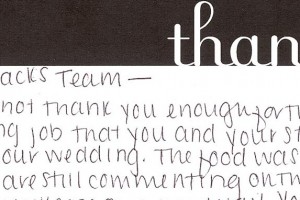 than
acks Team —
not thank you enough for th
ng job that you and your st
our wedding. The food was
are still commenting on th